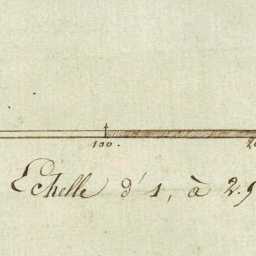 100.
Echelle d'1, à 2.5